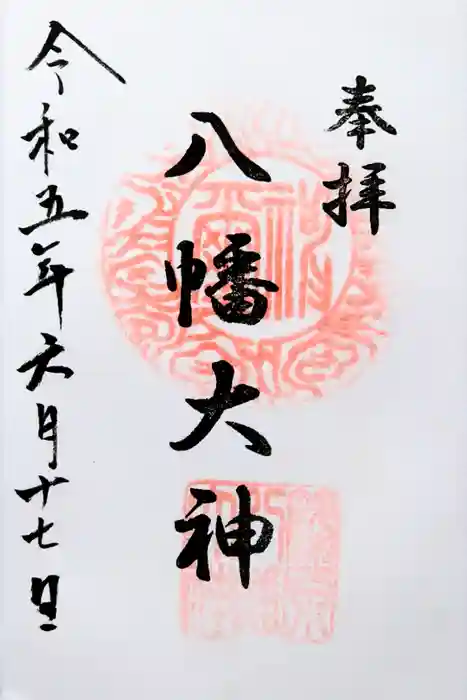 奉拝
八幡大神
令和五年六月十七日